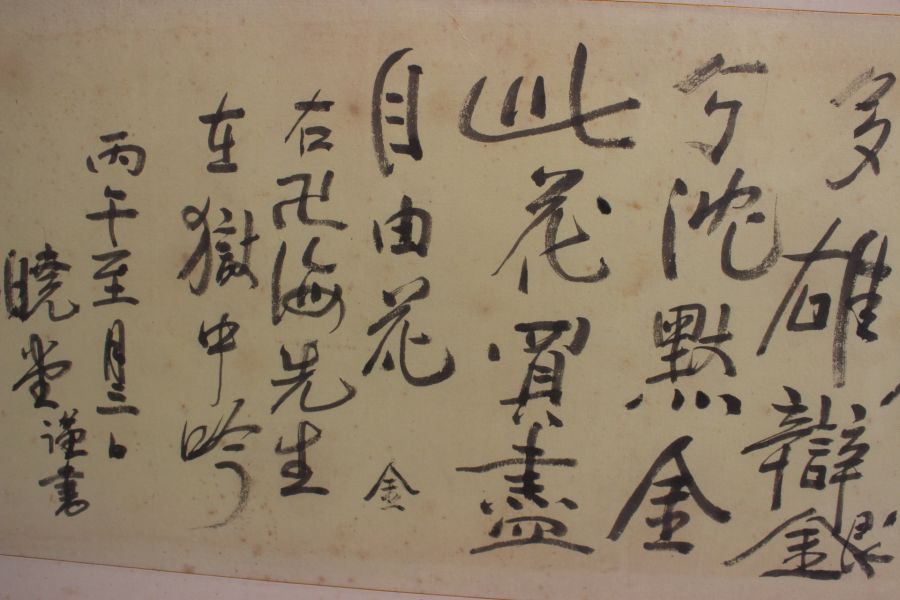 多雄辯銀
兮沈黙金
此花買盡
自由花 金
右卍海先生
在獄中吟
丙午至月三日
曉堂謹書